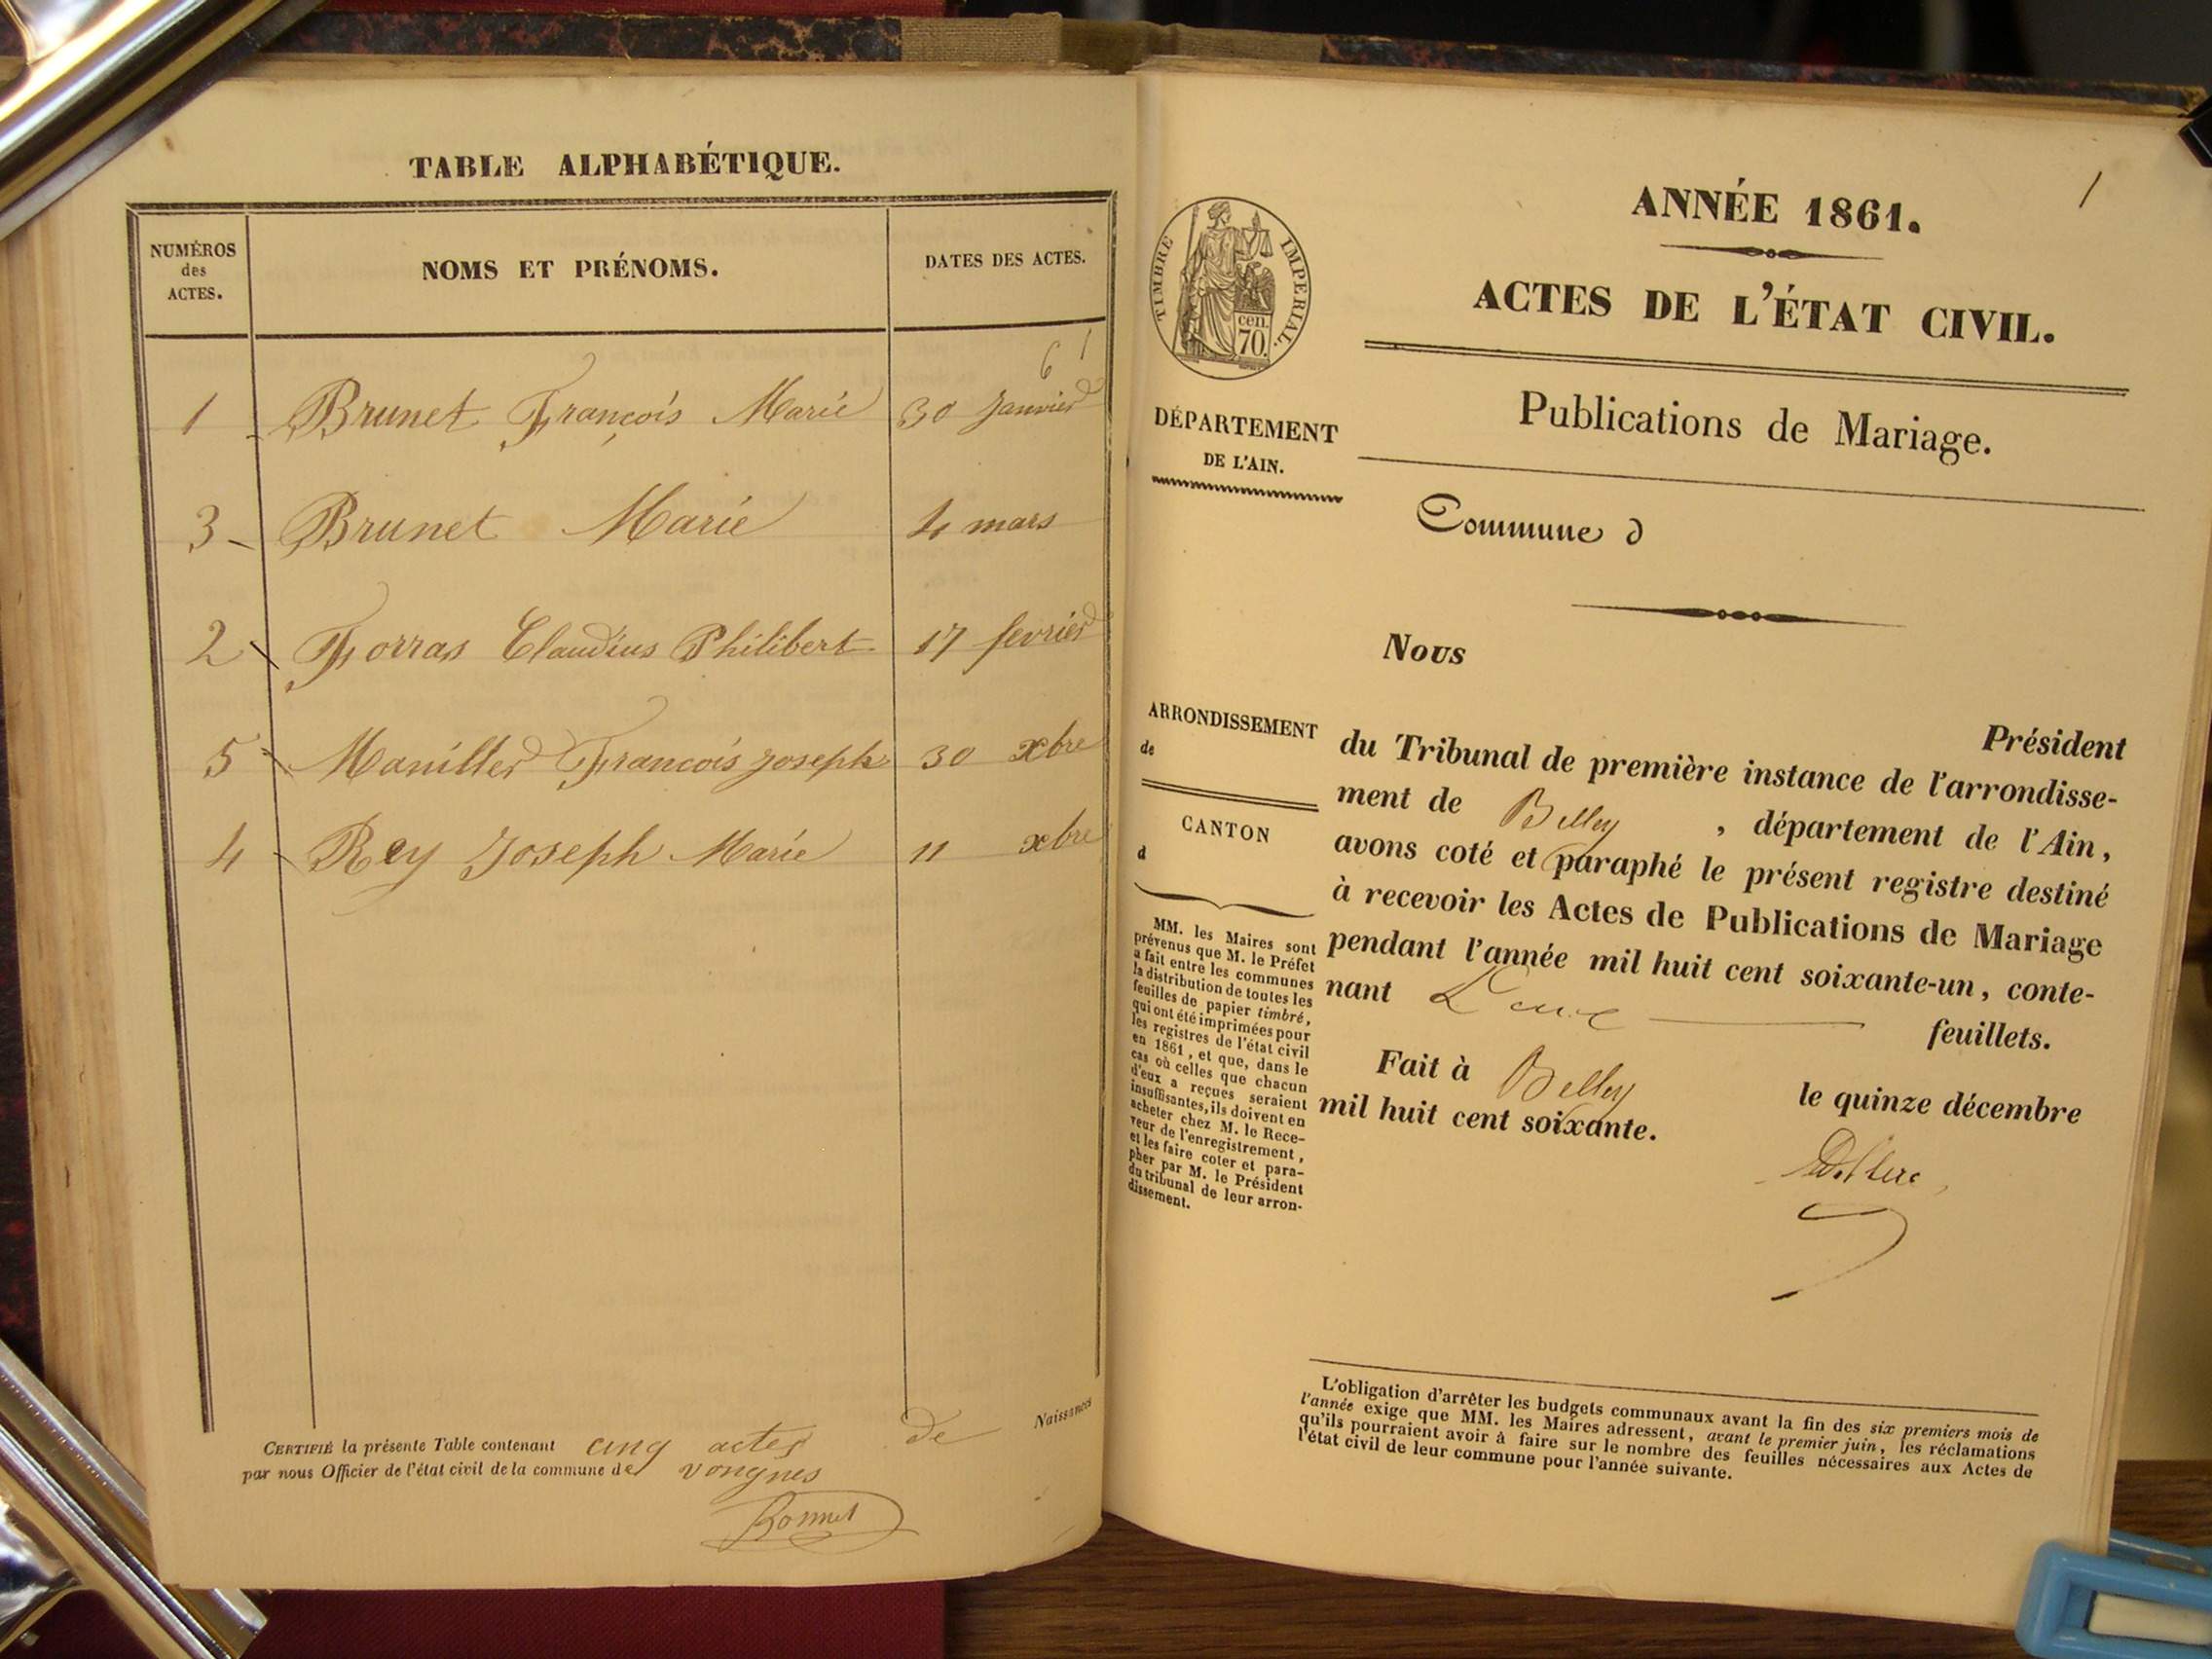 TABLE ALPHABÉTIQUE.
NUMÉROS
des
ACTES.
NOMS ET PRÉNOMS.
DATES DES ACTES.
61
1 Brunet François Marie 30 Janvier
3 Brunet Marie 4 mars
2 Forras Claudius Philibert 17 fevrier
5 Maniller François Joseph 30 xbre
4 Rey Joseph Marie 11 xbre
CERTIFIÉ la présente Table contenant cinq actes de Naissances
par nous Officier de l'état civil de la commune de vongnes
Bonnet
1
ANNÉE 1861.
ACTES DE L'ÉTAT CIVIL.
TIMBRE IMPERIAL.
cen.
70.
DÉPARTEMENT
DE L'AIN.
Publications de Mariage.
Commune d
ARRONDISSEMENT
de
CANTON
d
MM. les Maires sont
prévenus que M. le Préfet
a fait entre les communes
la distribution de toutes les
feuilles de papier timbré,
qui ont été imprimées pour
les registres de l'état civil
en 1861, et que, dans le
cas où celles que chacun
d'eux a reçues seraient
insuffisantes, ils doivent en
acheter chez M. le Rece-
veur de l'enregistrement,
et les faire coter et para-
pher par M. le Président
du tribunal de leur arron-
dissement.
Nous
Président
du Tribunal de première instance de l'arrondisse-
ment de Belley, département de l'Ain,
avons coté et paraphé le présent registre destiné
à recevoir les Actes de Publications de Mariage
pendant l'année mil huit cent soixante-un, conte-
nant feuillets.
Fait à Belley le quinze décembre
mil huit cent soixante.
L'obligation d'arrêter les budgets communaux avant la fin des six premiers mois de
l'année exige que MM. les Maires adressent, avant le premier juin, les réclamations
qu'ils pourraient avoir à faire sur le nombre des feuilles nécessaires aux Actes de
l'état civil de leur commune pour l'année suivante.